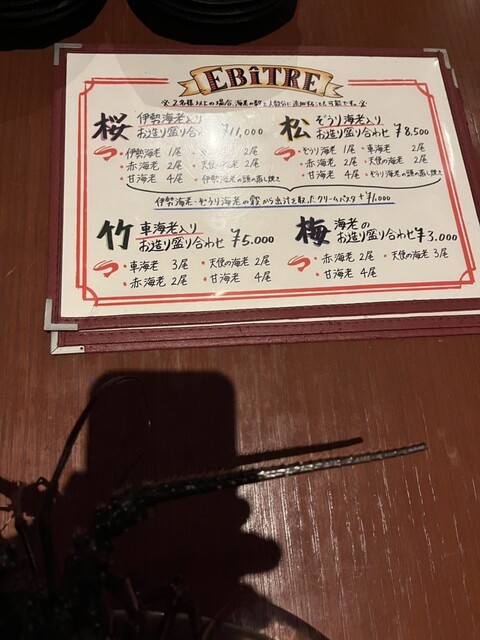 EBiTRE
※2名様以上の場合、海老の数を人数分に追加することも可能です。※
桜 伊勢海老入り
お造り盛り合わせ ¥11,000
・伊勢海老 1尾 2尾
・赤海老 2尾 ・天使の海老 2尾
・甘海老 4尾 ・伊勢海老の頭の蒸し焼き
松 ぞうり海老入り
お造り盛り合わせ ¥8,500
・ぞうり海老 1尾 ・車海老 2尾
・赤海老 2尾 ・天使の海老 2尾
・甘海老 4尾 ・ぞうり海老の頭の蒸し焼き
伊勢海老・ぞうり海老の殻から出汁を取ったクリームパスタ +¥1,000
竹 車海老入り
お造り盛り合わせ ¥5,000
・車海老 3尾 ・天使の海老 2尾
・赤海老 2尾 ・甘海老 4尾
梅 海老の
お造り盛り合わせ ¥3,000
・赤海老 2尾 ・天使の海老 3尾
・甘海老 4尾